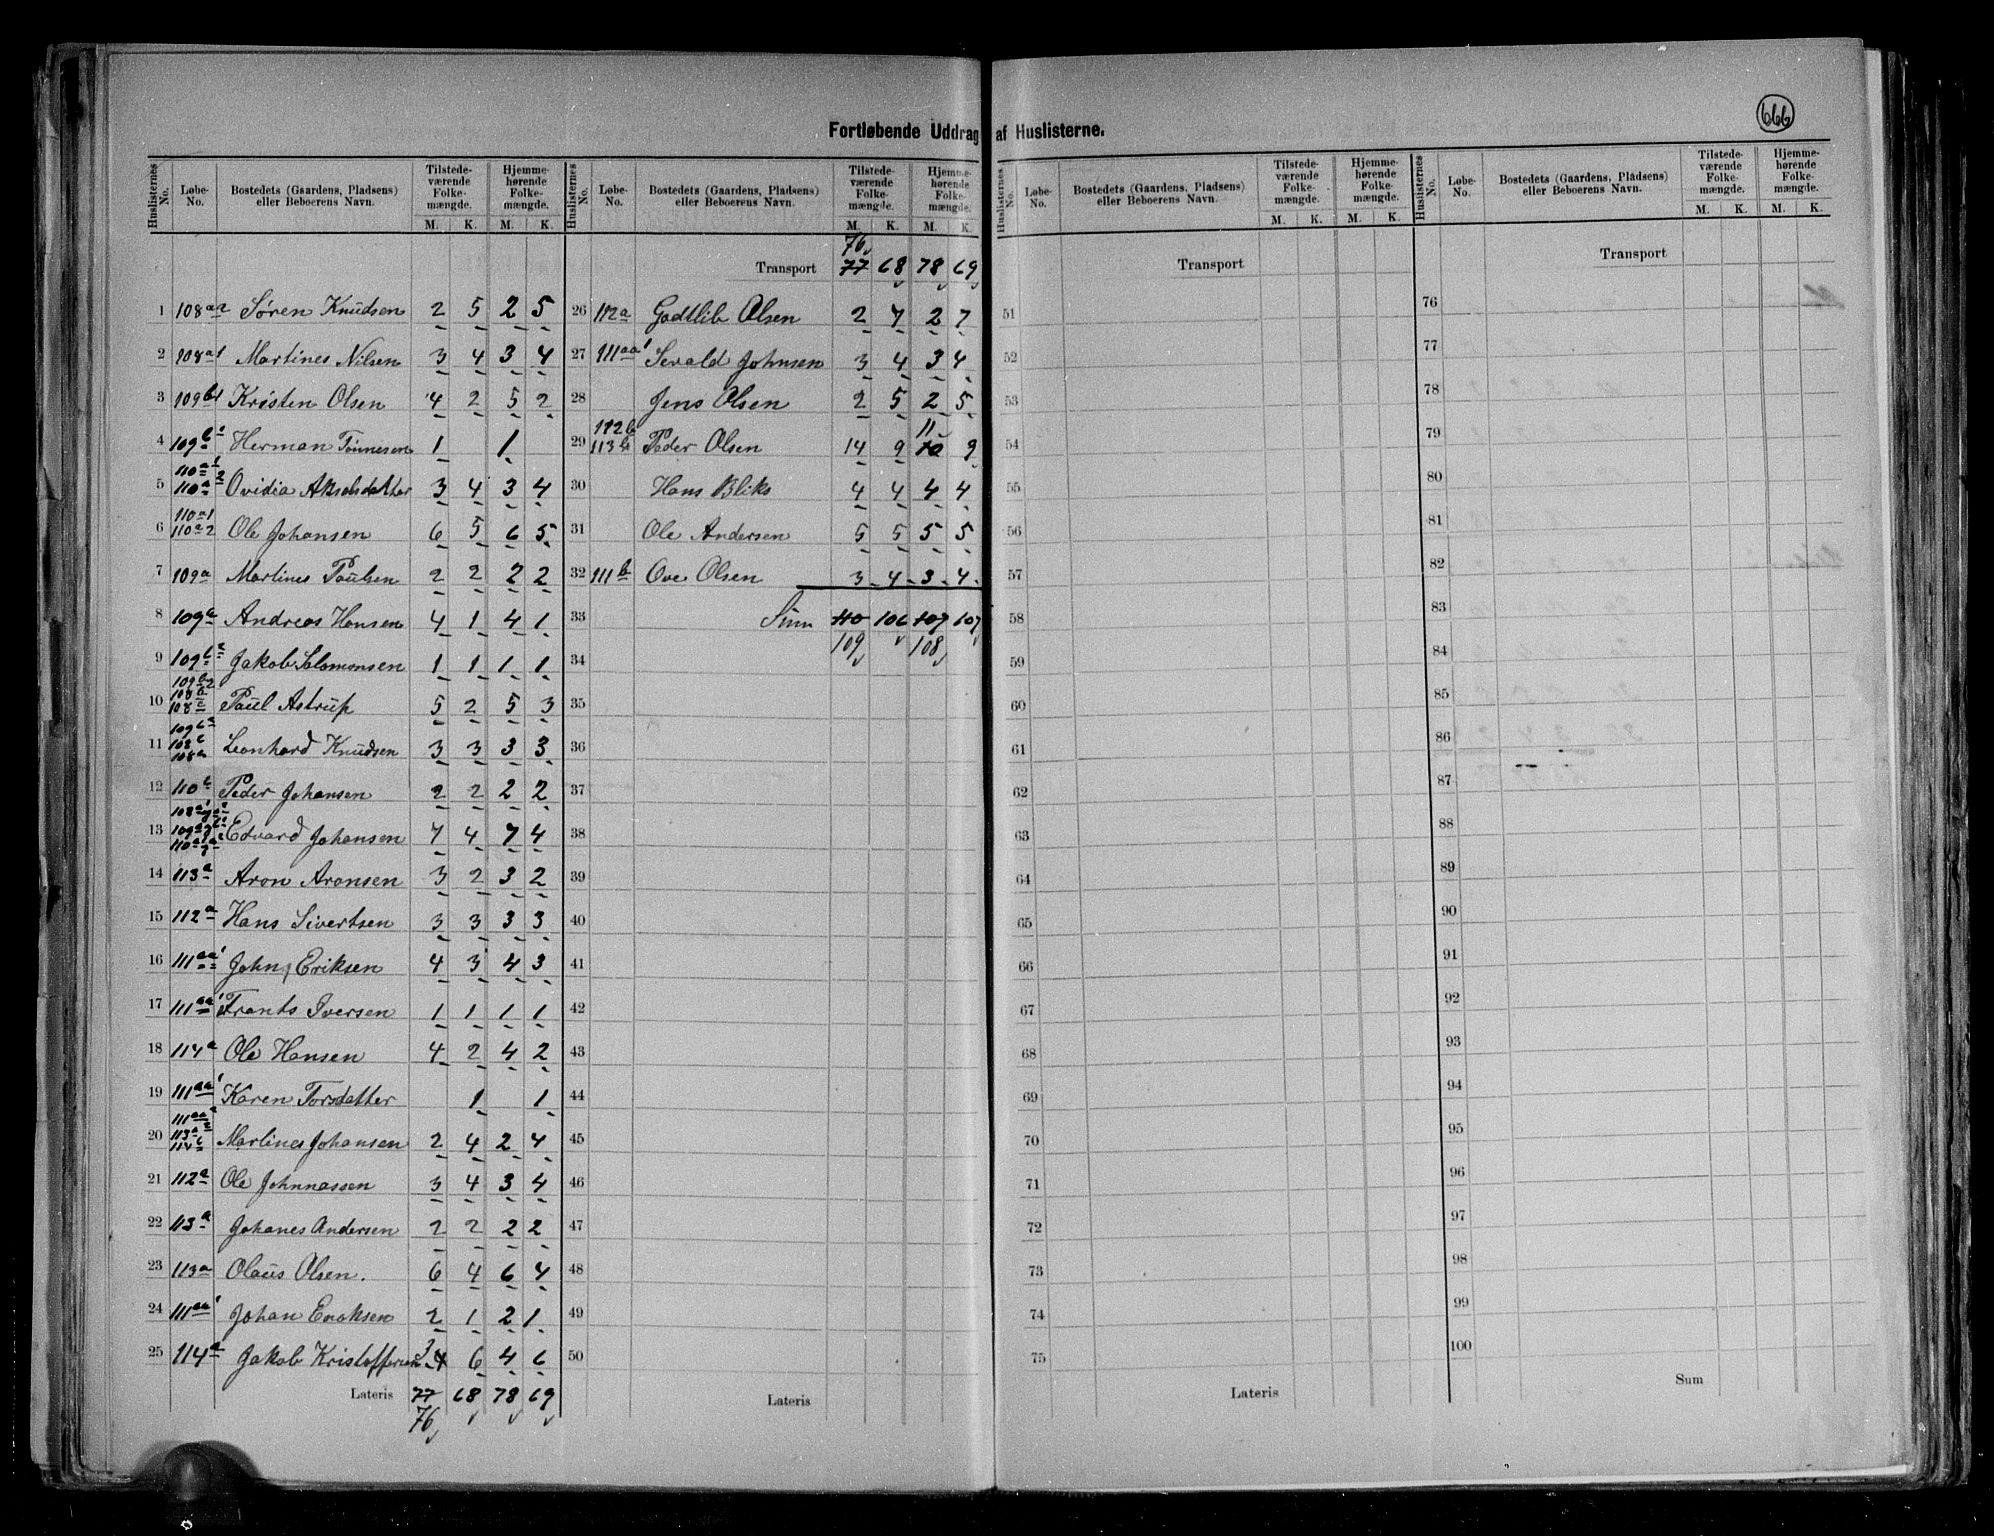 666
Fortløbende Uddrag af Huslisterne.
Huslisternes No. Løbe-No. Bostedets (Gaardens, Pladsens) eller Beboerens Navn. Tilstedeværende Folkemængde. M. K. Hjemmehørende Folkemængde. M. K.
1 108a2 Søren Knudsen 2 5 2 5
2 108a1 Martines Nilsen 3 4 3 4
3 109b1 Kristen Olsen 4 2 5 2
4 109b1 Herman Tønnesen 1 1
5 110a1 110a2 Ovidia Akselsdatter 3 4 3 4
6 110a1 110a2 Ole Johansen 6 5 6 5
7 109a Martines Paulsen 2 2 2 2
8 109a Andreas Hansen 4 1 4 1
9 109b2 Jakob Salomonsen 1 1 1 1
10 109b2 108b 108a Paul Astrup 5 2 5 3
11 Leonhard Knudsen 3 3 3 3
12 110b Peder Johansen 2 2 2 2
13 Edvard Johansen 7 4 7 4
14 113a Aron Aronsen 3 2 3 2
15 112a Hans Sivertsen 3 3 3 3
16 111aa1 John Eriksen 4 3 4 3
17 111aa1 Frants Iversen 1 1 1 1
18 114a Ole Hansen 4 2 4 2
19 111aa1 Karen Torsdatter 1 1
20 Martines Johansen 2 4 2 4
21 112a Ole Johnnassen 3 4 3 4
22 113a Johanes Andersen 2 2 2 2
23 113a Olaus Olsen. 6 4 6 4
24 111aa1 Johan Enoksen 2 1 2 1
25 114a Jakob Kristoffersen 3 4 6 4 6
Lateris 77 68 78 69
76
Huslisternes No. Løbe-No. Bostedets (Gaardens, Pladsens) eller Beboerens Navn. Tilstedeværende Folkemængde. M. K. Hjemmehørende Folkemængde. M. K.
76
Transport 77 68 78 69
26 112a Godtlib Olsen 2 7 2 7
27 111aa1 Sevald Johnsen 3 4 3 4
28 Jens Olsen 2 5 2 5
29 112b 113b Peder Olsen 14 9 11 10 9
30 Hans Bliks 4 4 4 4
31 Ole Andersen 5 5 5 5
32 111b Ove Olsen 3 4 3 4
33 Sum 110 106 107 107
109 108
34
35
36
37
38
39
40
41
42
43
44
45
46
47
48
49
50
Lateris
Huslisternes No. Løbe-No. Bostedets (Gaardens, Pladsens) eller Beboerens Navn. Tilstedeværende Folkemængde. M. K. Hjemmehørende Folkemængde. M. K.
Transport
51
52
53
54
55
56
57
58
59
60
61
62
63
64
65
66
67
68
69
70
71
72
73
74
75
Lateris
Huslisternes No. Løbe-No. Bostedets (Gaardens, Pladsens) eller Beboerens Navn. Tilstedeværende Folkemængde. M. K. Hjemmehørende Folkemængde. M. K.
Transport
76
77
78
79
80
81
82
83
84
85
86
87
88
89
90
91
92
93
94
95
96
97
98
99
100
Sum